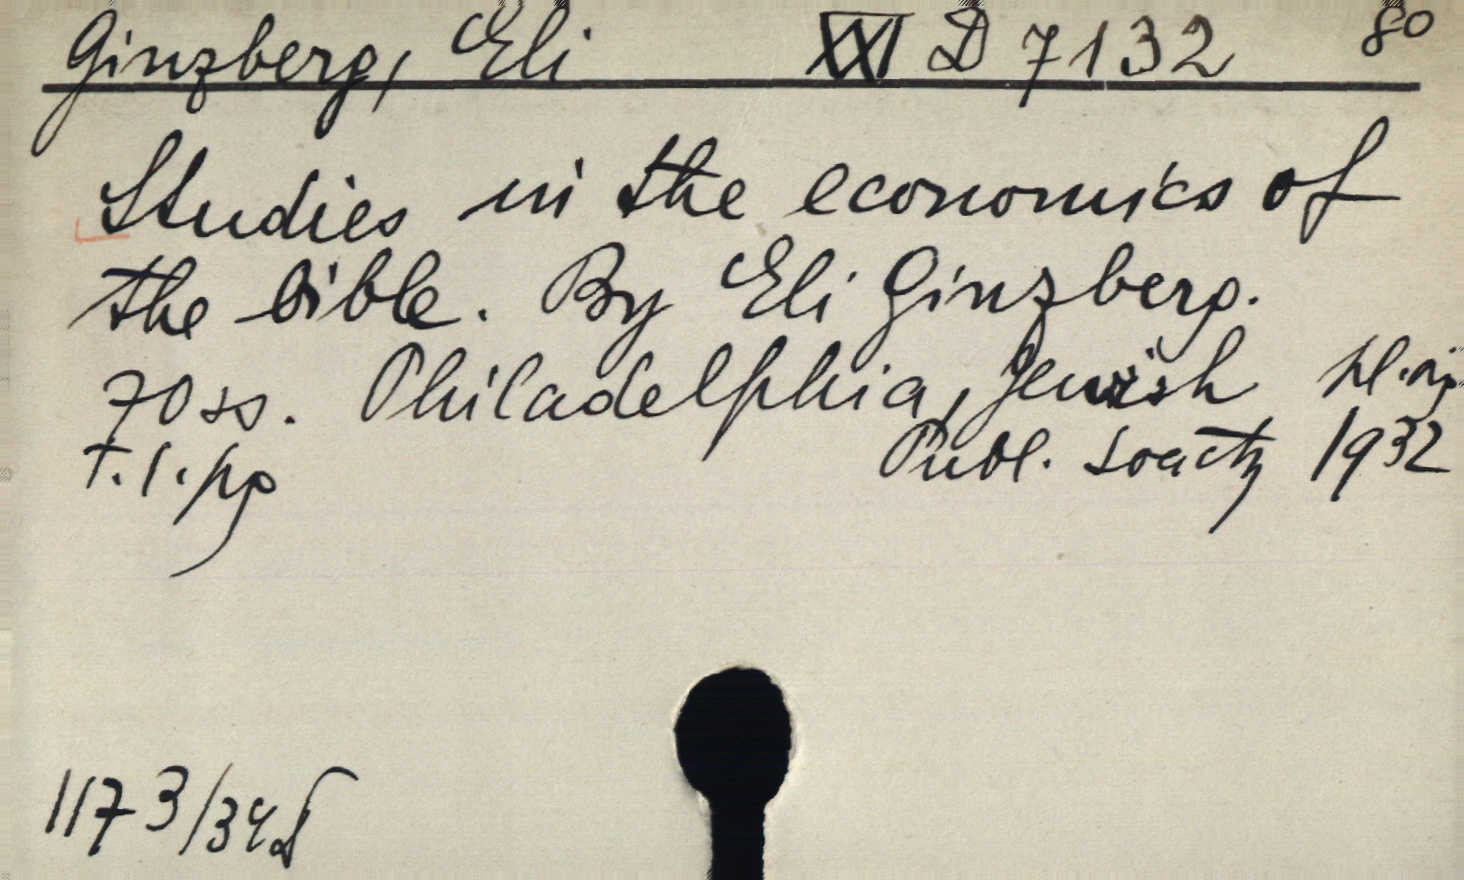 Ginzberg, Eli XXI D 7132 80
Studies in the economics of
the bible. By Eli Ginzberg.
70 ss. Philadelphia, Jewish
Publ. Society 1932
1173/34